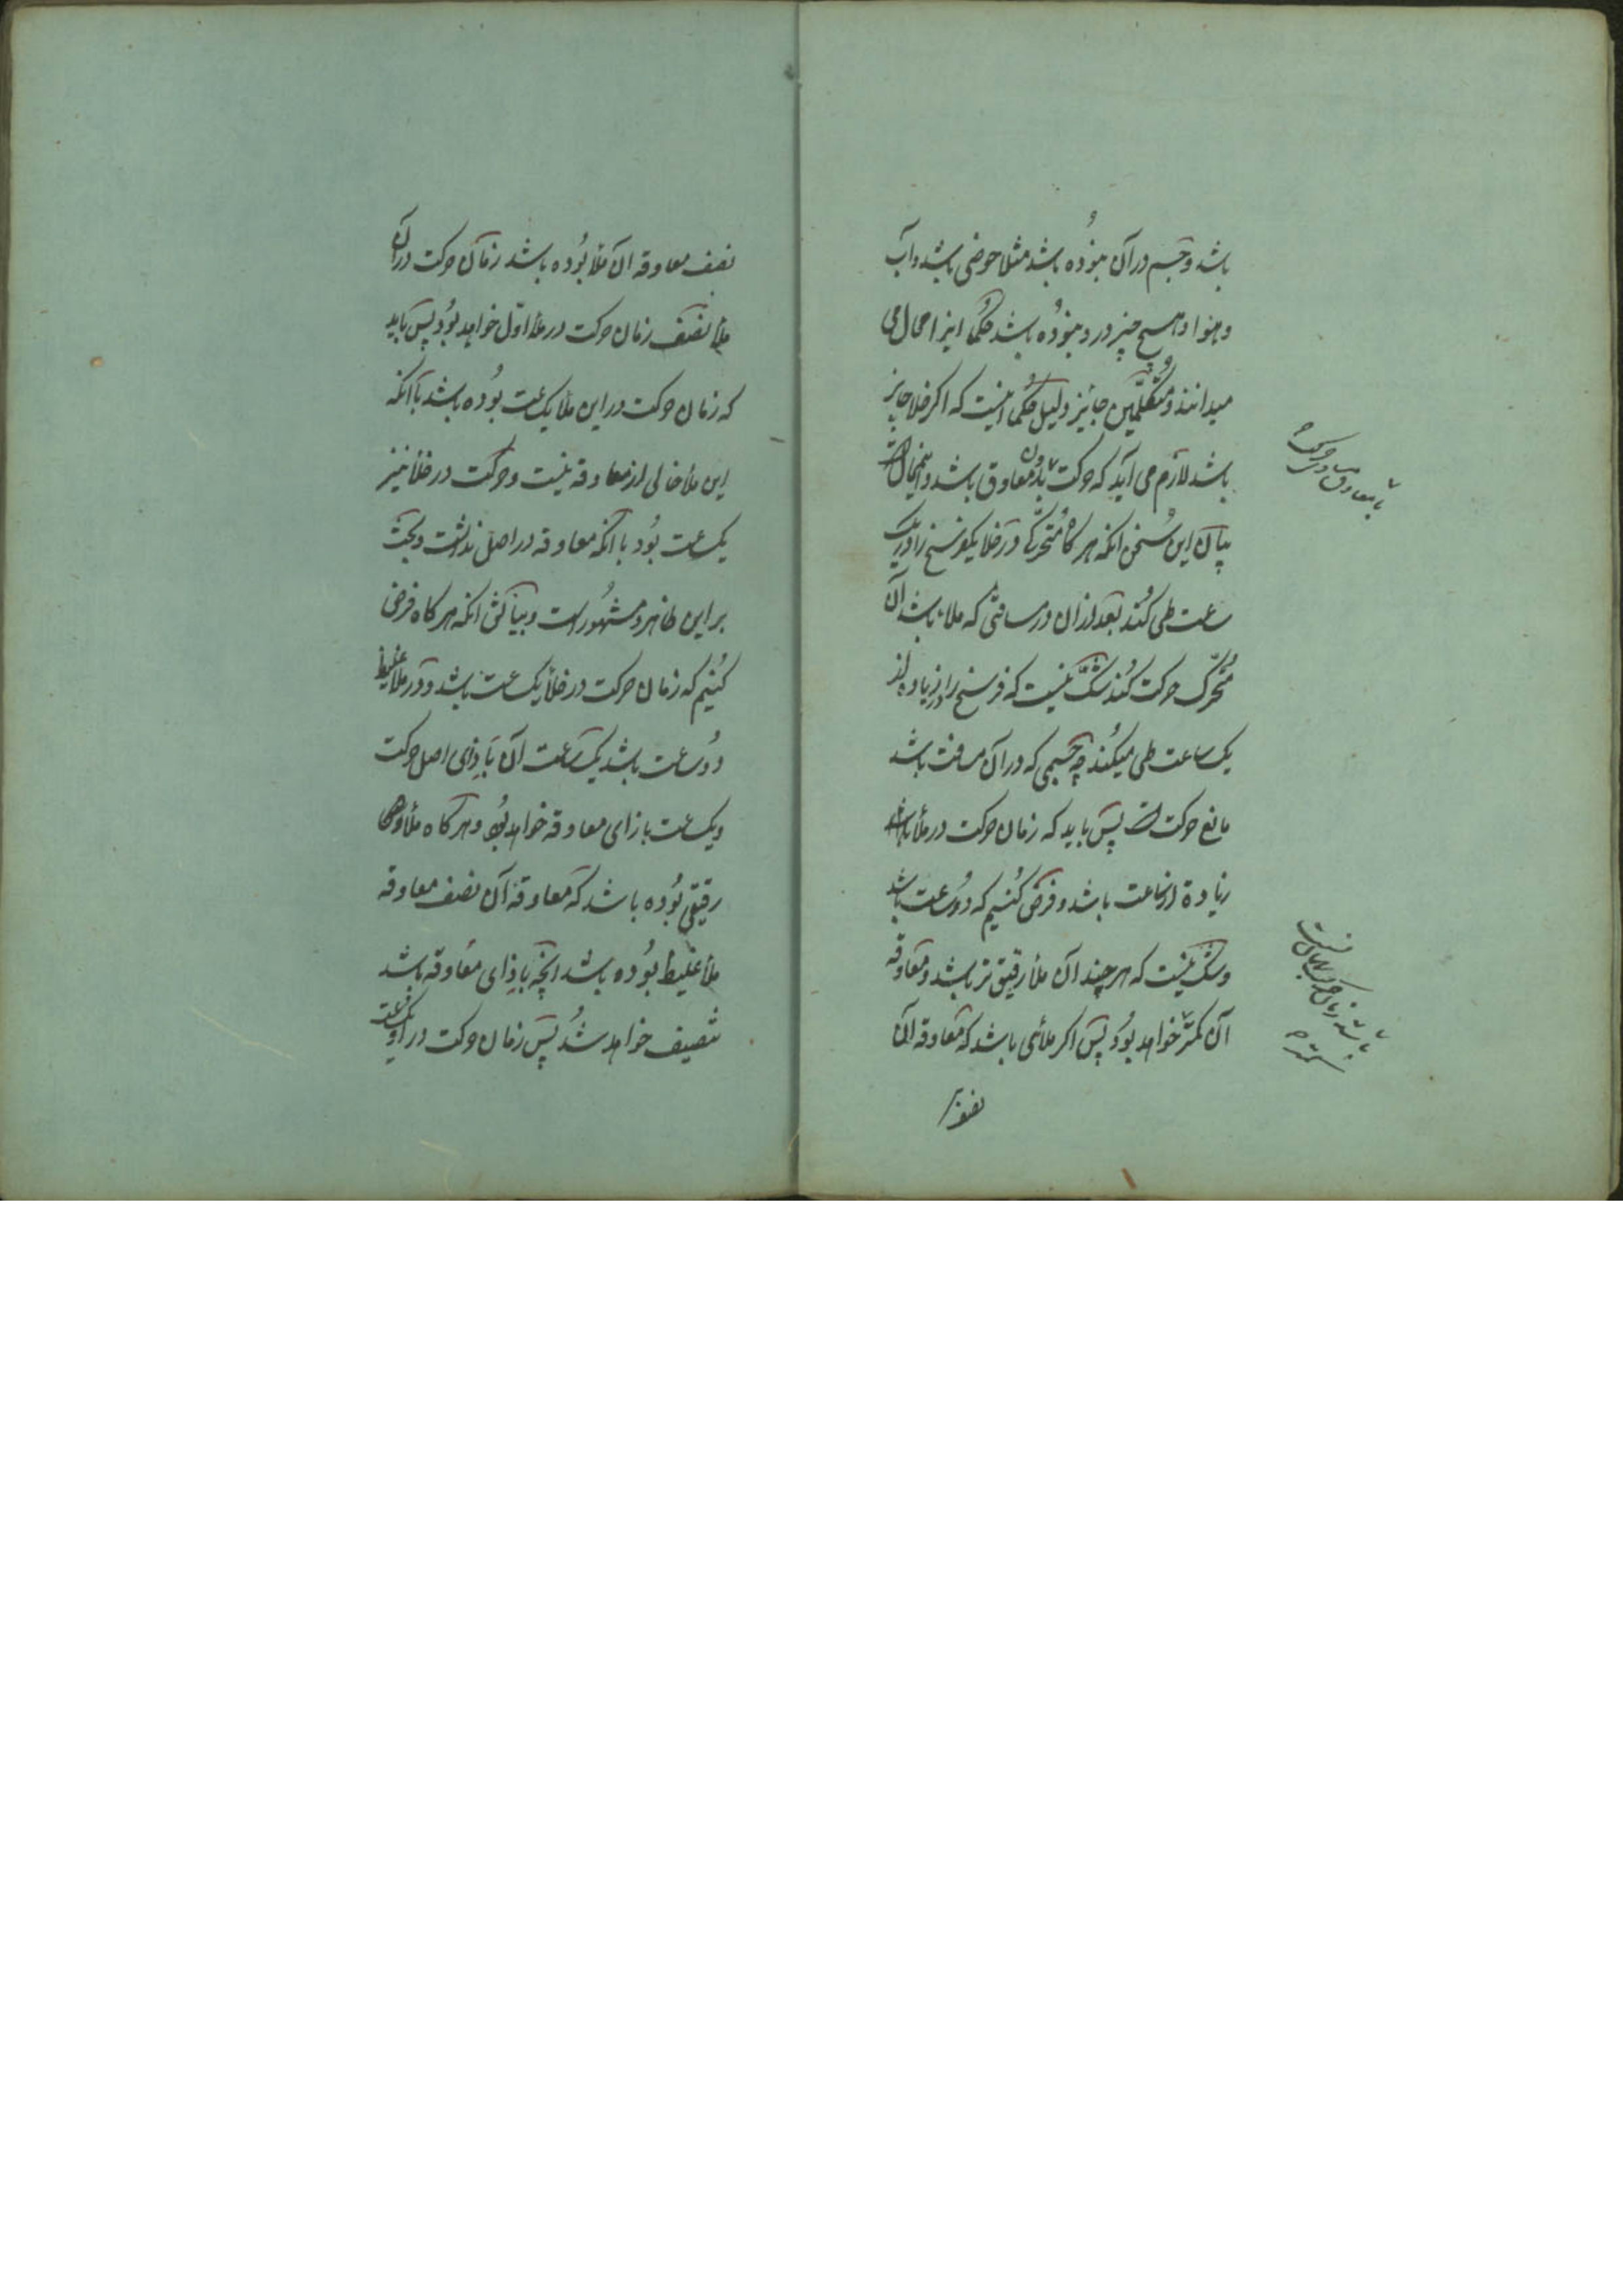 باشد و جسم در آن نبوده باشد مثلا حوضی باشد و آب
و هوا و هیچ چیز در و نبوده باشد حکما اینرا محال می
میدانند و متکلمین جائیز و لیل حکما اینست که اکر خلا جایز
باشد لازم می آید که حرکت بدون معاوق باشد و اینمحال
بیان این سخن انکه هر کاه متحرکی در خلا یکفرسخ را در یک
ساعت طی کند بعد از ان در مسافتی که ملاء باشد آن
متحرک حرکت کند شک نیست که فرسخ را در زیاده از
یک ساعت طی میکند چه جسمی که در آن مسافت باشد
مانع حرکت پس باید که زمان حرکت در ملأ
زیاده از ساعت باشد و فرض کنیم که دو ساعت باشد
و شک نیست که هر چند آن ملأ رقیق تر باشد و معاوقه
آن کمتر خواهد بود پس اکر ملأئی باشد که معاوقه آن
نصف
با معاوق حرکت
نصف معاوقه آن ملأ بوده باشد زمان حرکت در آن
ملأ نصف زمان حرکت در ملأ اول خواهد بود پس باید
که زمان حرکت در این ملأ یکساعت بوده باشد با آنکه
این ملأ خالی از معاوقه نیست و حرکت در خلأ نیز
یکساعت بود با آنکه معاوقه در اصل نداشت و بحث
بر این ظاهر و مشهور است و بیانش انکه هر کاه فرض
کنیم که زمان حرکت در خلأ یکساعت باشد و در ملأ غلیظ
دو ساعت باشد یکساعت آن بازای اصل حرکت
و یکساعت بازای معاوقه خواهد بود و هر کاه ملأ
رقیقی بوده باشد که معاوقه آن نصف معاوقه
ملأ غلیظ بوده باشد انچه بازای معاوقه باشد
تنصیف خواهد شد پس زمان حرکت در او یکساعت